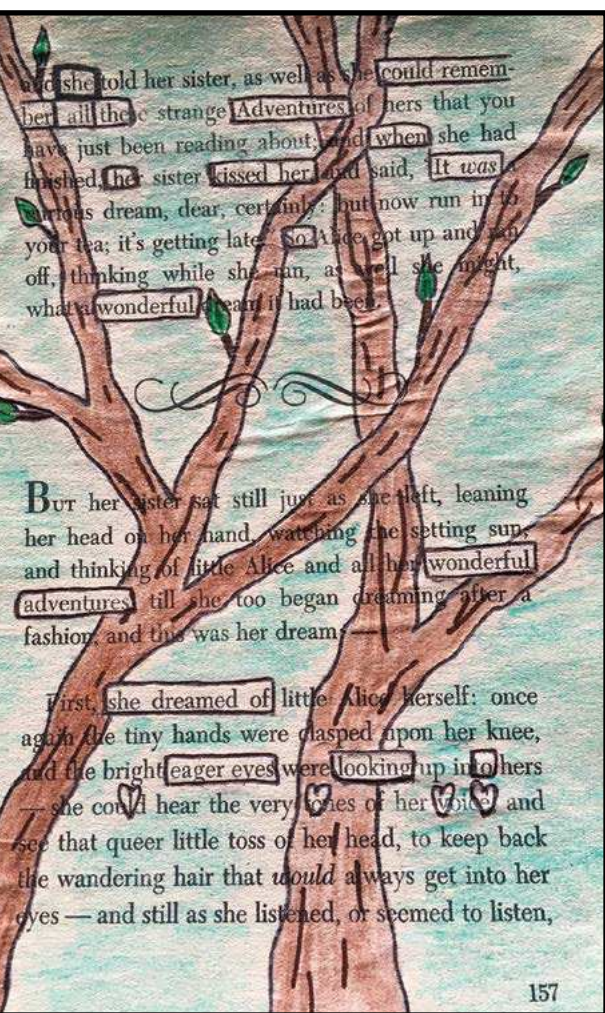 and she told her sister, as well as she could remem-
ber all these strange Adventures of hers that you
have just been reading about; and when she had
finished, her sister kissed her, and said, It was a
curious dream, dear, certainly: but now run in to
your tea; it's getting late. So Alice got up and ran
off, thinking while she ran, as well she might,
what a wonderful dream it had been.
BUT her sister sat still just as she left, leaning
her head on her hand, watching the setting sun,
and thinking of little Alice and all her wonderful
adventures till she too began dreaming after a
fashion, and this was her dream:—
First, she dreamed of little Alice herself: once
again the tiny hands were clasped upon her knee,
and the bright eager eyes were looking up into hers
— she could hear the very tones of her voice, and
see that queer little toss of her head, to keep back
the wandering hair that would always get into her
eyes — and still as she listened, or seemed to listen,
157